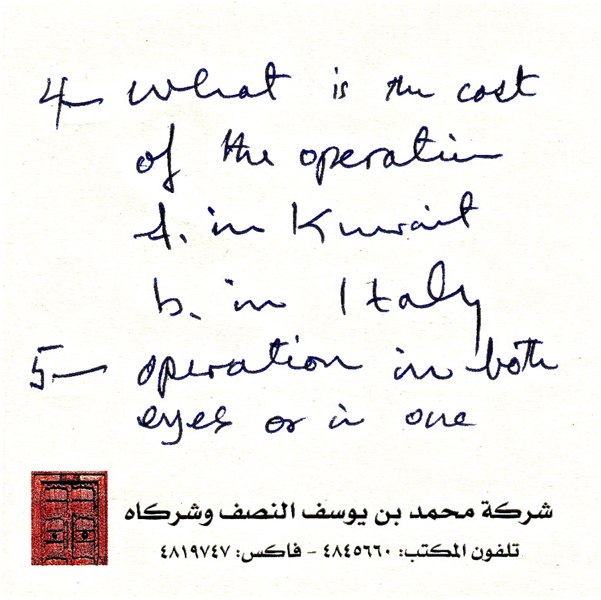 4- What is the cost
of the operation
A. in Kuwait
b. in Italy
5- operation in both
eyes or in one
شركة محمد بن يوسف النصف وشركاه
تلفون المكتب: ٤٨٤٥٦٦٠ - فاكس: ٤٨١٩٧٤٧